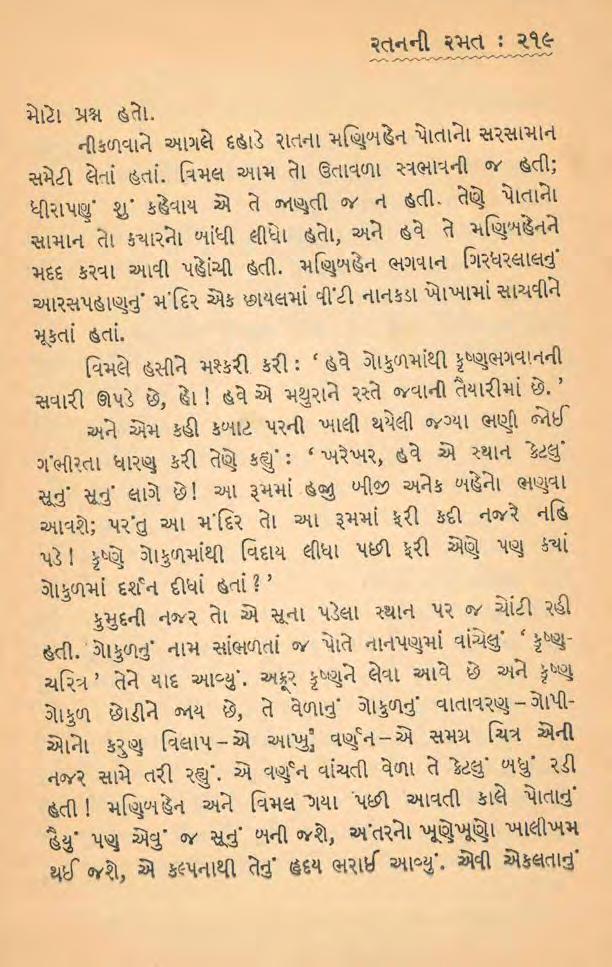 રતનની રમત : ૨૧૯
મોટો પ્રશ્ન હતો.
નીકળવાને આગલે દહાડે રાતના મણિબહેન પોતાનો સરસામાન
સમેટી લેતાં હતાં. વિમલ આમ તો ઉતાવળા સ્વભાવની જ હતી;
ધીરાપણું શું કહેવાય એ તે જાણતી જ ન હતી. તેણે પોતાનો
સામાન તો કયારનો બાંધી લીધો હતો, અને હવે તે મણિબહેનને
મદદ કરવા આવી પહોંચી હતી. મણિબહેન ભગવાન ગિરધરલાલનું
આરસપહાણનું મંદિર એક છાયલમાં વીંટી નાનકડા ખોખામાં સાચવીને
મૂકતાં હતાં.
વિમલે હસીને મશ્કરી કરી : ‘ હવે ગોકુળમાંથી કૃષ્ણભગવાનની
સવારી ઊપડે છે, હો ! હવે એ મથુરાને રસ્તે જવાની તૈયારીમાં છે. ’
અને એમ કહી કબાટ પરની ખાલી થયેલી જગ્યા ભણી જોઈ
ગંભીરતા ધારણ કરી તેણે કહ્યું : ‘ ખરેખર, હવે એ સ્થાન કેટલું
સૂનું સૂનું લાગે છે! આ રૂમમાં હજી બીજી અનેક બહેનો ભણવા
આવશે; પરંતુ આ મંદિર તો આ રૂમમાં ફરી કદી નજરે નહિ
પડે ! કૃષ્ણે ગોકુળમાંથી વિદાય લીધા પછી ફરી એણે પણ કયાં
ગોકુળમાં દર્શન દીધાં હતાં ? ’
કુમુદની નજર તો એ સૂના પડેલા સ્થાન પર જ ચોંટી રહી
હતી. ગોકુળનું નામ સાંભળતાં જ પોતે નાનપણમાં વાંચેલું ‘ કૃષ્ણ-
ચરિત્ર ’ તેને યાદ આવ્યું. અક્રૂર કૃષ્ણને લેવા આવે છે અને કૃષ્ણ
ગોકુળ છોડીને જાય છે, તે વેળાનું ગોકુળનું વાતાવરણ – ગોપી-
ઓનો કરુણ વિલાપ – એ આખું વર્ણન – એ સમગ્ર ચિત્ર એની
નજર સામે તરી રહ્યું. એ વર્ણન વાંચતી વેળા તે કેટલું બધું રડી
હતી ! મણિબહેન અને વિમલ ગયા પછી આવતી કાલે પોતાનું
હૈયું પણ એવું જ સૂનું બની જશે, અંતરનો ખૂણેખૂણો ખાલીખમ
થઈ જશે, એ કલ્પનાથી તેનું હૃદય ભરાઈ આવ્યું. એવી એકલતાનું